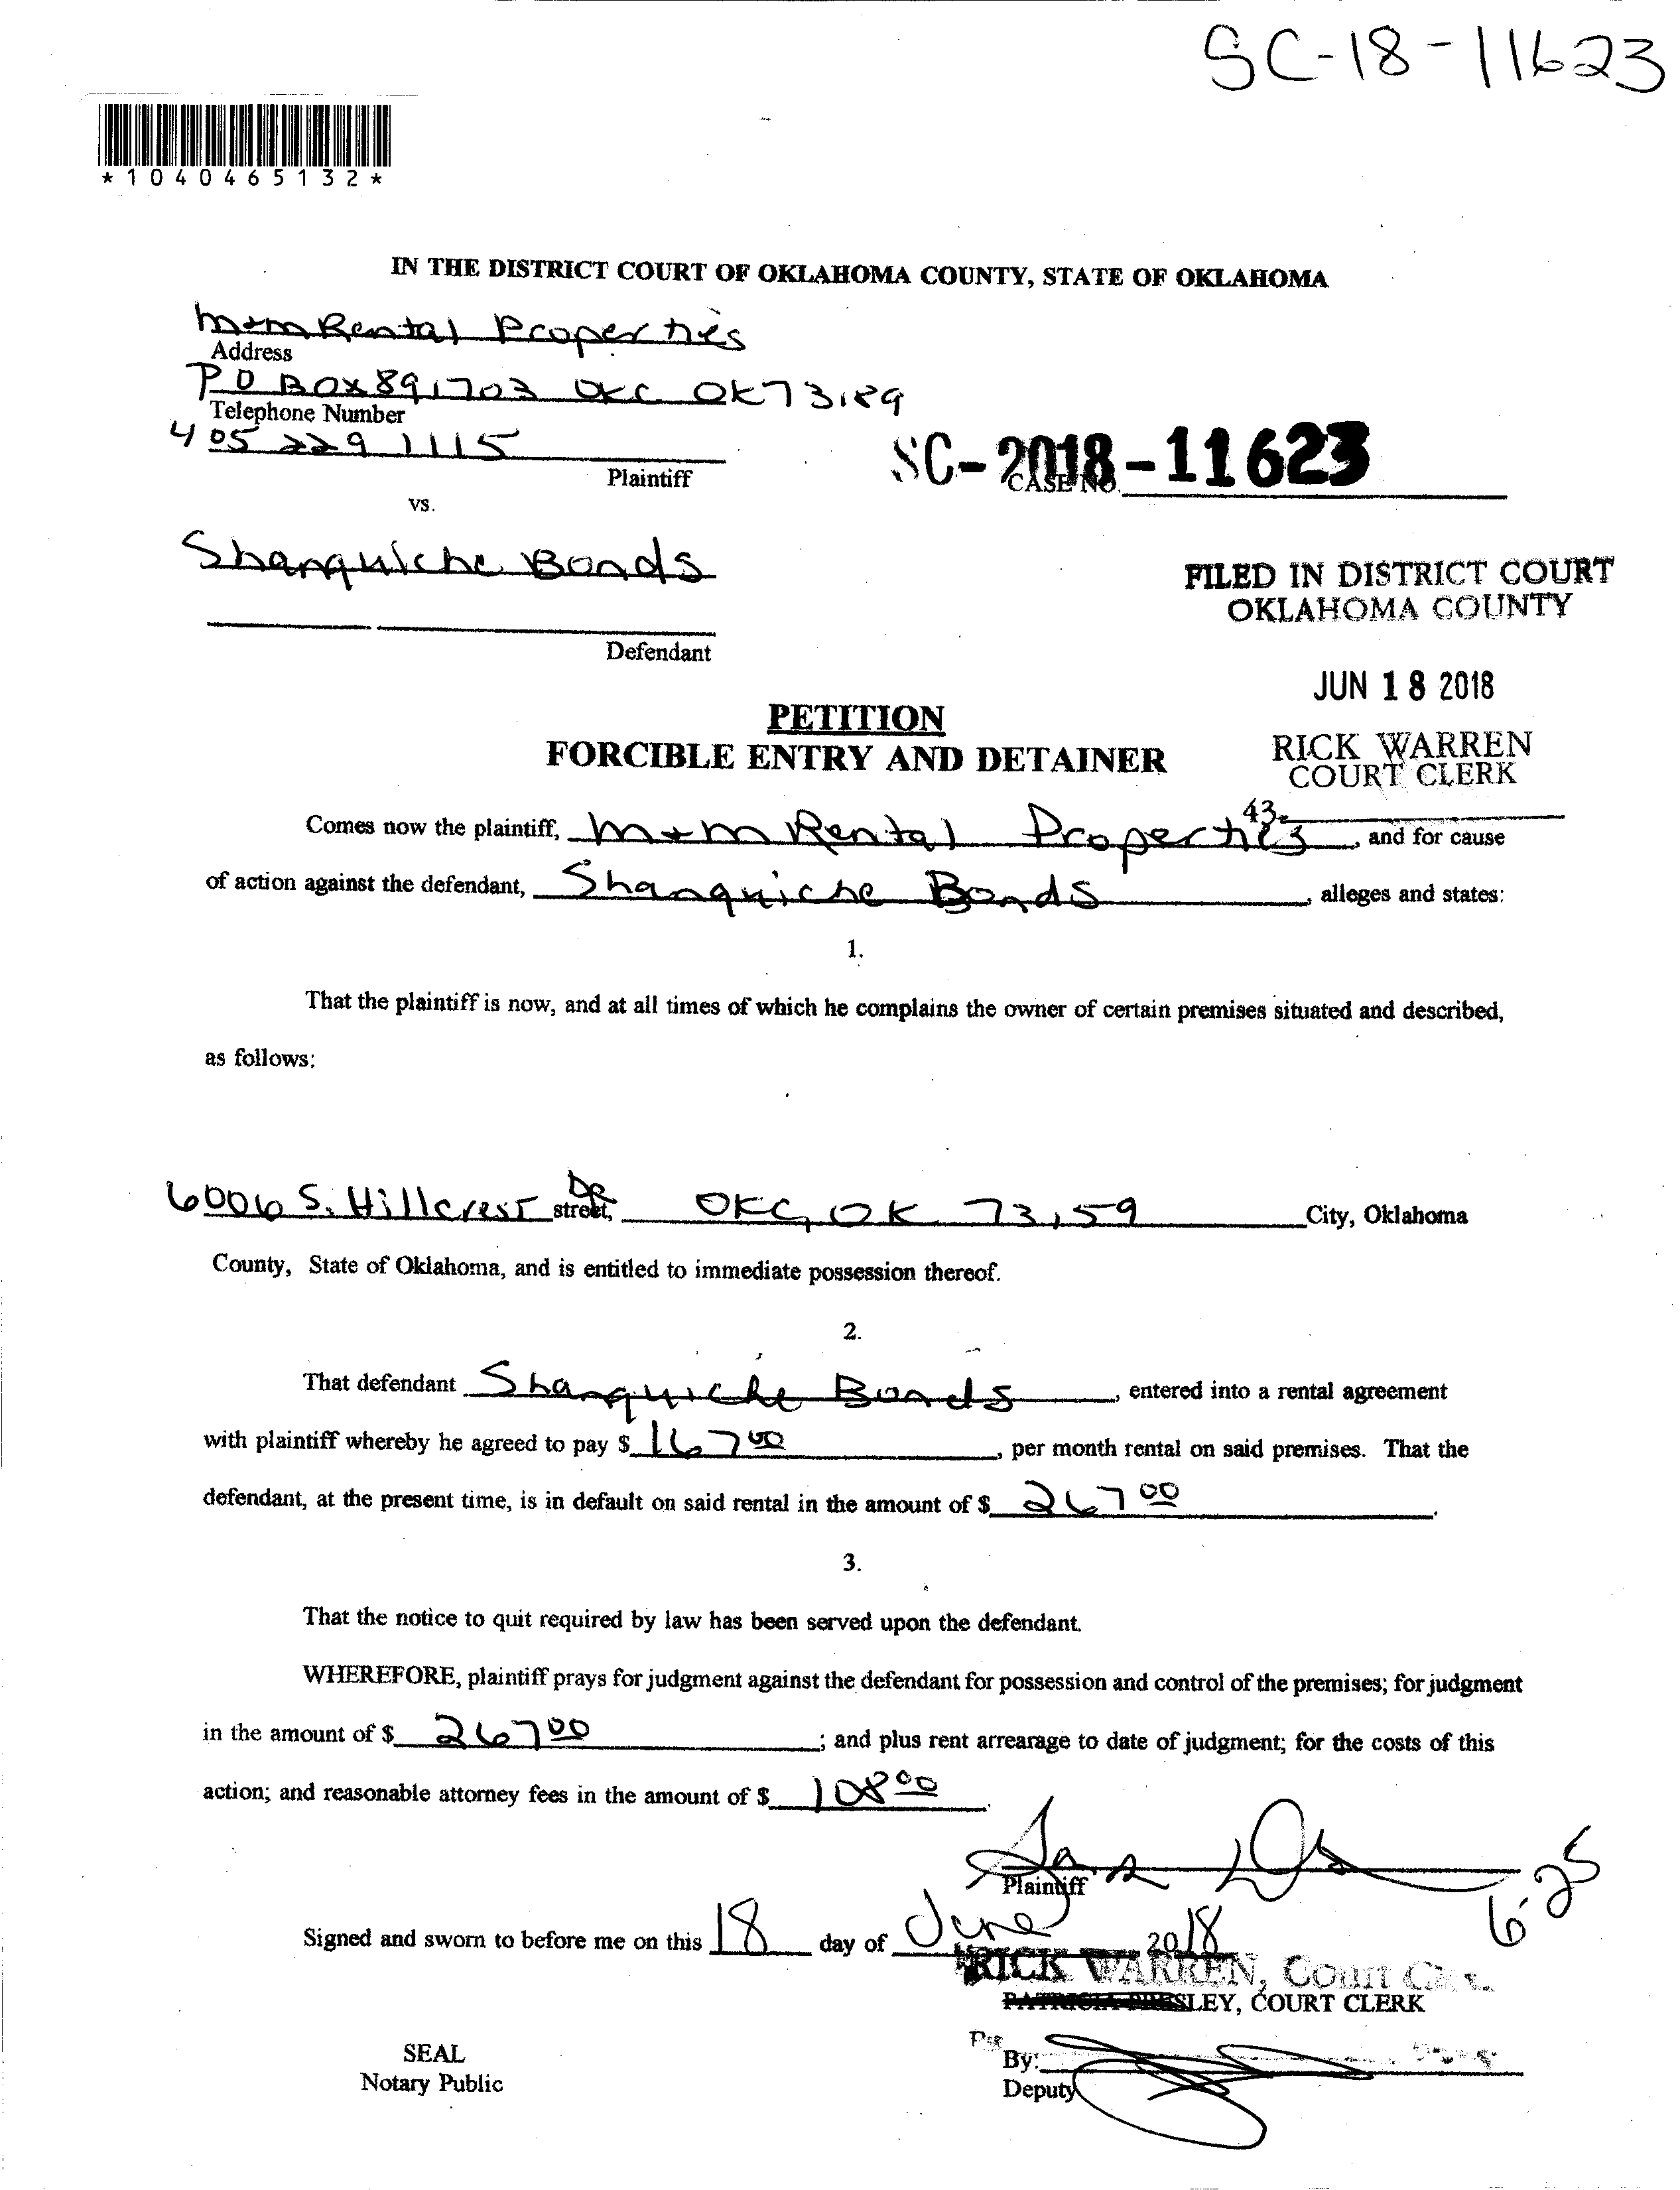 SC-18-11623
*1040465132*
IN THE DISTRICT COURT OF OKLAHOMA COUNTY, STATE OF OKLAHOMA
M+M Rental Properties
Address
P O Box 891703 OKC OK 73189
Telephone Number
405 229 1115
Plaintiff
SC-2018-11623
CASE NO.
vs.
Shanquiche Bonds
Defendant
FILED IN DISTRICT COURT
OKLAHOMA COUNTY
JUN 18 2018
RICK WARREN
COURT CLERK
43
PETITION
FORCIBLE ENTRY AND DETAINER
Comes now the plaintiff, M+M Rental Properties, and for cause
of action against the defendant, Shanquiche Bonds, alleges and states:
1.
That the plaintiff is now, and at all times of which he complains the owner of certain premises situated and described,
as follows:
6006 S. Hillcrest Dr street, OKC, OK 73159 City, Oklahoma
County, State of Oklahoma, and is entitled to immediate possession thereof.
2.
That defendant Shanquiche Bonds, entered into a rental agreement
with plaintiff whereby he agreed to pay $ 167 00, per month rental on said premises. That the
defendant, at the present time, is in default on said rental in the amount of $ 267 00.
3.
That the notice to quit required by law has been served upon the defendant.
WHEREFORE, plaintiff prays for judgment against the defendant for possession and control of the premises; for judgment
in the amount of $ 267 00; and plus rent arrearage to date of judgment; for the costs of this
action; and reasonable attorney fees in the amount of $ 108 00.
Plaintiff
6-25
Signed and sworn to before me on this 18 day of June 2018
RICK WARREN, Court
PATRICIA PRESLEY, COURT CLERK
SEAL
Notary Public
By:
Deputy